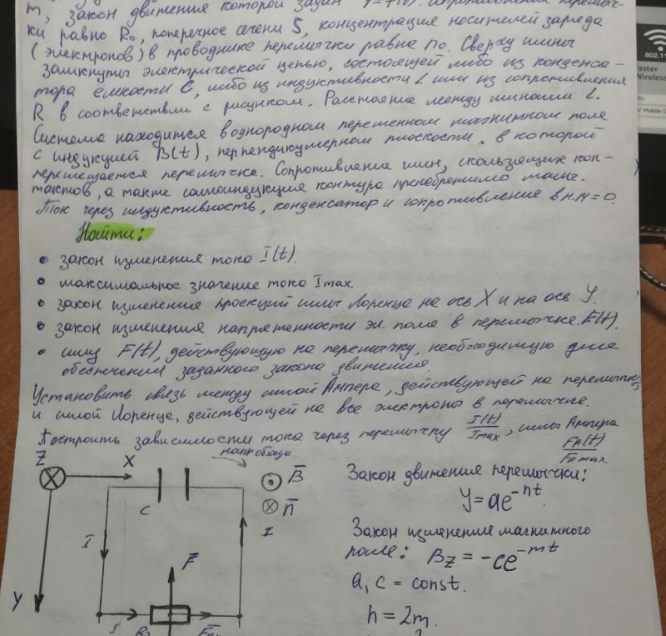 m, закон движения которой задан Y=f(t).
ки равно R₀, поперечное сечени S, концентрация носителей заряда
(электронов) в проводнике перемычки равна n₀. Сверху шины
замкнуты электрической цепью, состоящей либо из конденса-
тора ёмкости C, либо из индуктивности L или из сопротивления
R в соответствии с рисунком. Расстояние между шинами L.
Система находится в однородном переменном магнитном поле
с индукцией B(t), перпендикулярном плоскости, в которой
перемещается перемычка. Сопротивление шин, скользящих кон-
тактов, а также самоиндукция контура пренебрежимо малы.
Ток через индуктивность, конденсатор и сопротивление в н.м=0.
Найти:
• закон изменения тока I(t).
• максимальное значение тока Imax.
• закон изменения проекций силы Лоренца на ось X и на ось Y.
• закон изменения напряженности эл. поля в перемычке E(t).
• силу F(t), действующую на перемычку, необходимую для
обеспечения заданного закона движения
Установить связь между силой Ампера, действующей на перемычку
и силой Лоренца, действующей на все электроны в перемычке.
Построить зависимости тока через перемычку I(t)/Imax, силы Ампера FA(t)/FAmax.
Z X
C
B̄
n̄
Ī
I
Y
F̄
I
R₀
Закон движения перемычки:
Y=ae^-nt
Закон изменения магнитного
поле: Bz=-ce^-mt
a, c - const.
n=2m.